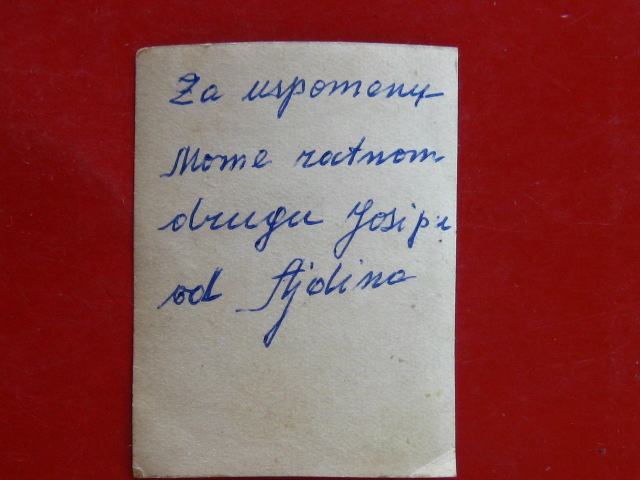 Za uspomenu
Mome ratnom
drugu Josipu
od Ajdina